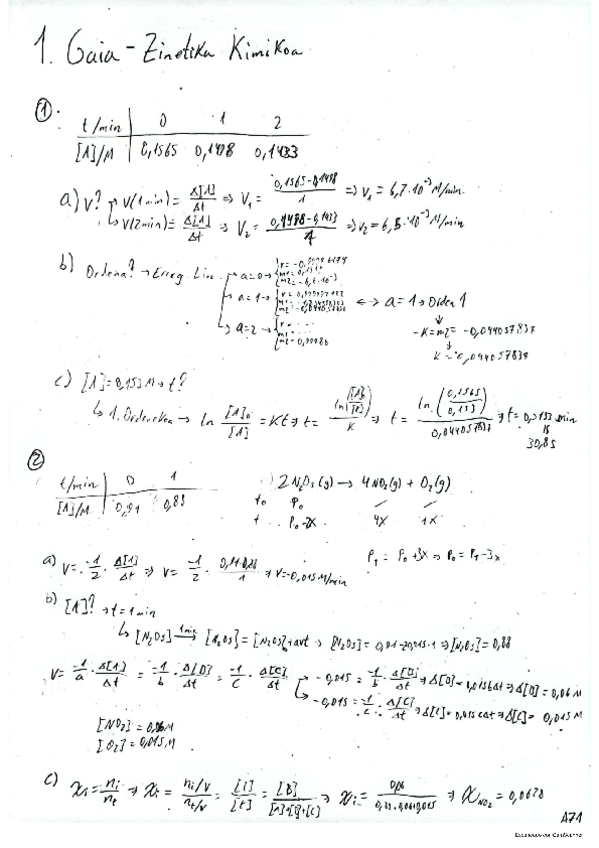 1. Gaia - Zinetika Kimikoa
①.
t/min 0 1 2
[A]/M 0,1565 0,1498 0,1433
a) v? → v(1min) = Δ[A]/Δt ⇒ V₁ = (0,1565-0,1498)/1 ⇒ v₁ = 6,7·10⁻³ M/min.
↳ v(2min) = Δ[A]/Δt ⇒ V₂ = (0,1498-0,1433)/1 ⇒ v₂ = 6,5·10⁻³ M/min
b) Ordena? → Erreg. Lin.
a=0 →
a=1 → ↔ a=1 → Orden 1
a=2 →
-K = m2 = -0,044057837
K = 0,044057837
c) [A] = 0,153 M → t?
↳ 1. Ordenekoa → ln [A]₀/[A] = Kt ⇒ t = ⇒ t = ln(0,1565/0,153)/0,044057837 ⇒ t = min
30,8s
②
t/min 0 1
[A]/M 0,91 0,88
2N₂O₅(g) → 4NO₂(g) + O₂(g)
t₀ P₀ – –
t P₀-2x 4x 1x
a) v = -1/2 · Δ[A]/Δt ⇒ v = -1/2 · ⇒ v = -0,015 M/min
P_T = P₀ + 3x ⇒ P₀ = P_T - 3x
b) [A]? → t = 1min
↳ [N₂O₅] 1min → [N₂O₅] = [N₂O₅]₀ + avt ⇒ [N₂O₅] = 0,91-2·0,015·1 ⇒ [N₂O₅] = 0,88
v = -1/a · Δ[A]/Δt = -1/b · Δ[B]/Δt = -1/c · Δ[C]/Δt → -0,015 = -1/b · Δ[B]/Δt ⇒ Δ[B] = 0,015bΔt ⇒ Δ[B] = 0,06 M
→ -0,015 = -1/c · Δ[C]/Δt ⇒ Δ[C] = 0,015cΔt ⇒ Δ[C] = 0,015 M
[NO₂] = 0,06 M
[O₂] = 0,015 M
c) χi = ni/nt ⇒ χi = (ni/v)/(nt/v) = [i]/[t] = [B]/([A]+[B]+[C]) ⇒ χi = ⇒ χNO₂ = 0,0628
A71
Escaneado con CamScanner